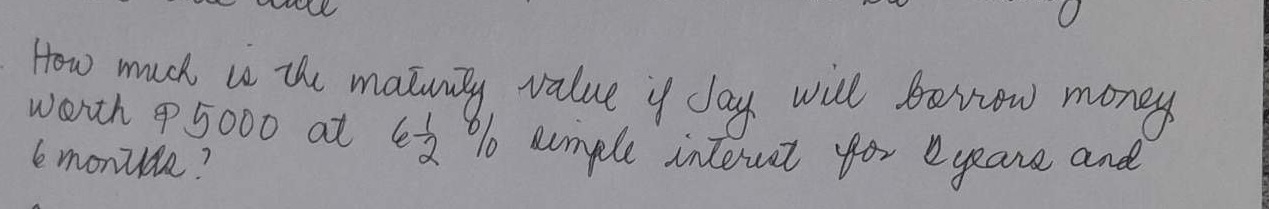 How much is the maturity value if Jay will borrow money
worth ₱5000 at 6½% simple interest for 2 years and
6 months?